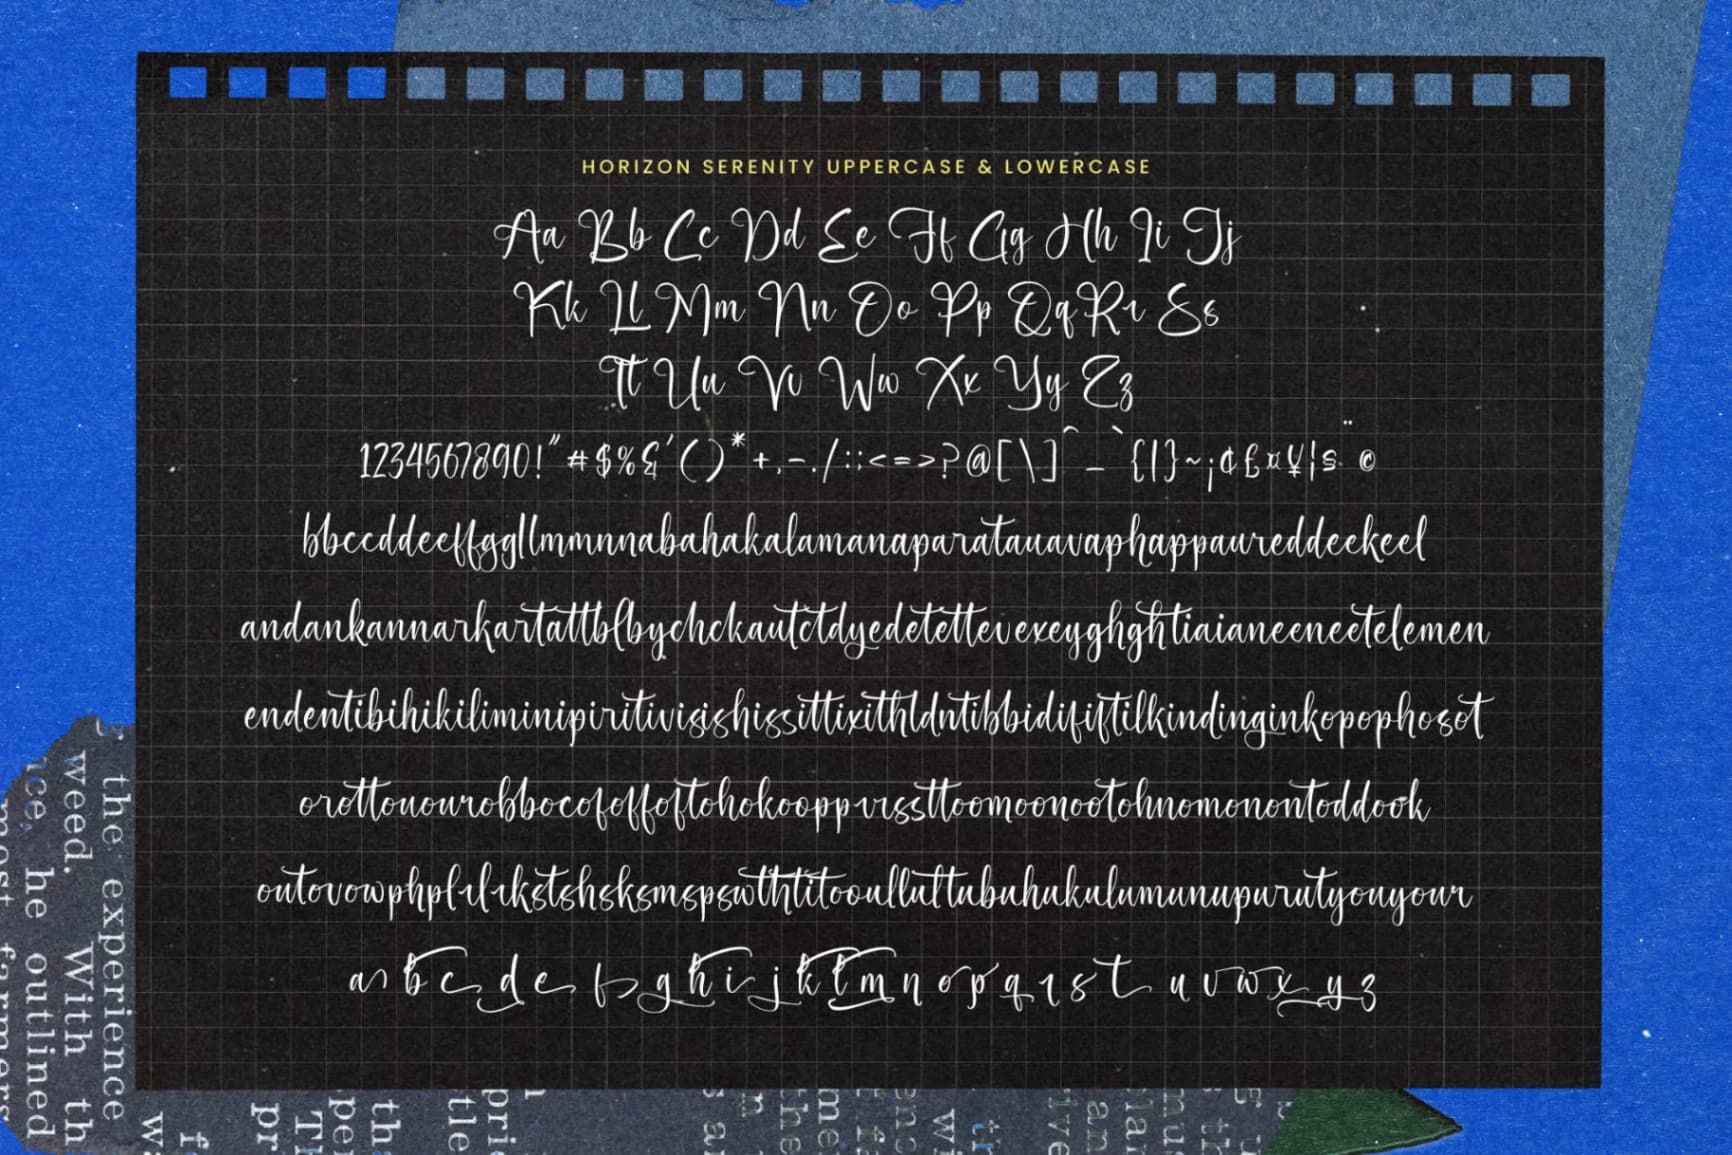 HORIZON SERENITY UPPERCASE & LOWERCASE
Aa Bb Cc Dd Ee Ff Gg Hh Ii Jj
Kk Ll Mm Nn Oo Pp Qq Rr Ss
Tt Uu Vv Ww Xx Yy Zz
1234567890!"#$%&'()*+,-./:;<=>?@[\]^_`{|}~¡¢£¤¥¦§¨©
bbccddeeffggllmmnnabahakalamanaparatauavaphappaureddeekeel
andankannarkartattblbychckautctdyedetetteevexeyghghtiaianeeneetelemen
endentibihikiliminipiritivisishissittixithldntibbidififtilkindinginkopophosot
orottouourobbocofoffoftohokoopprrssttoomoonootohnomonontoddook
outovowphplrlrkstshsksmspswthtitooulluttubuhukulumunupurutyouyour
a b c d e f g h i j k l m n o p q r s t u v w x y z
the experience
weed. With th
he outlined